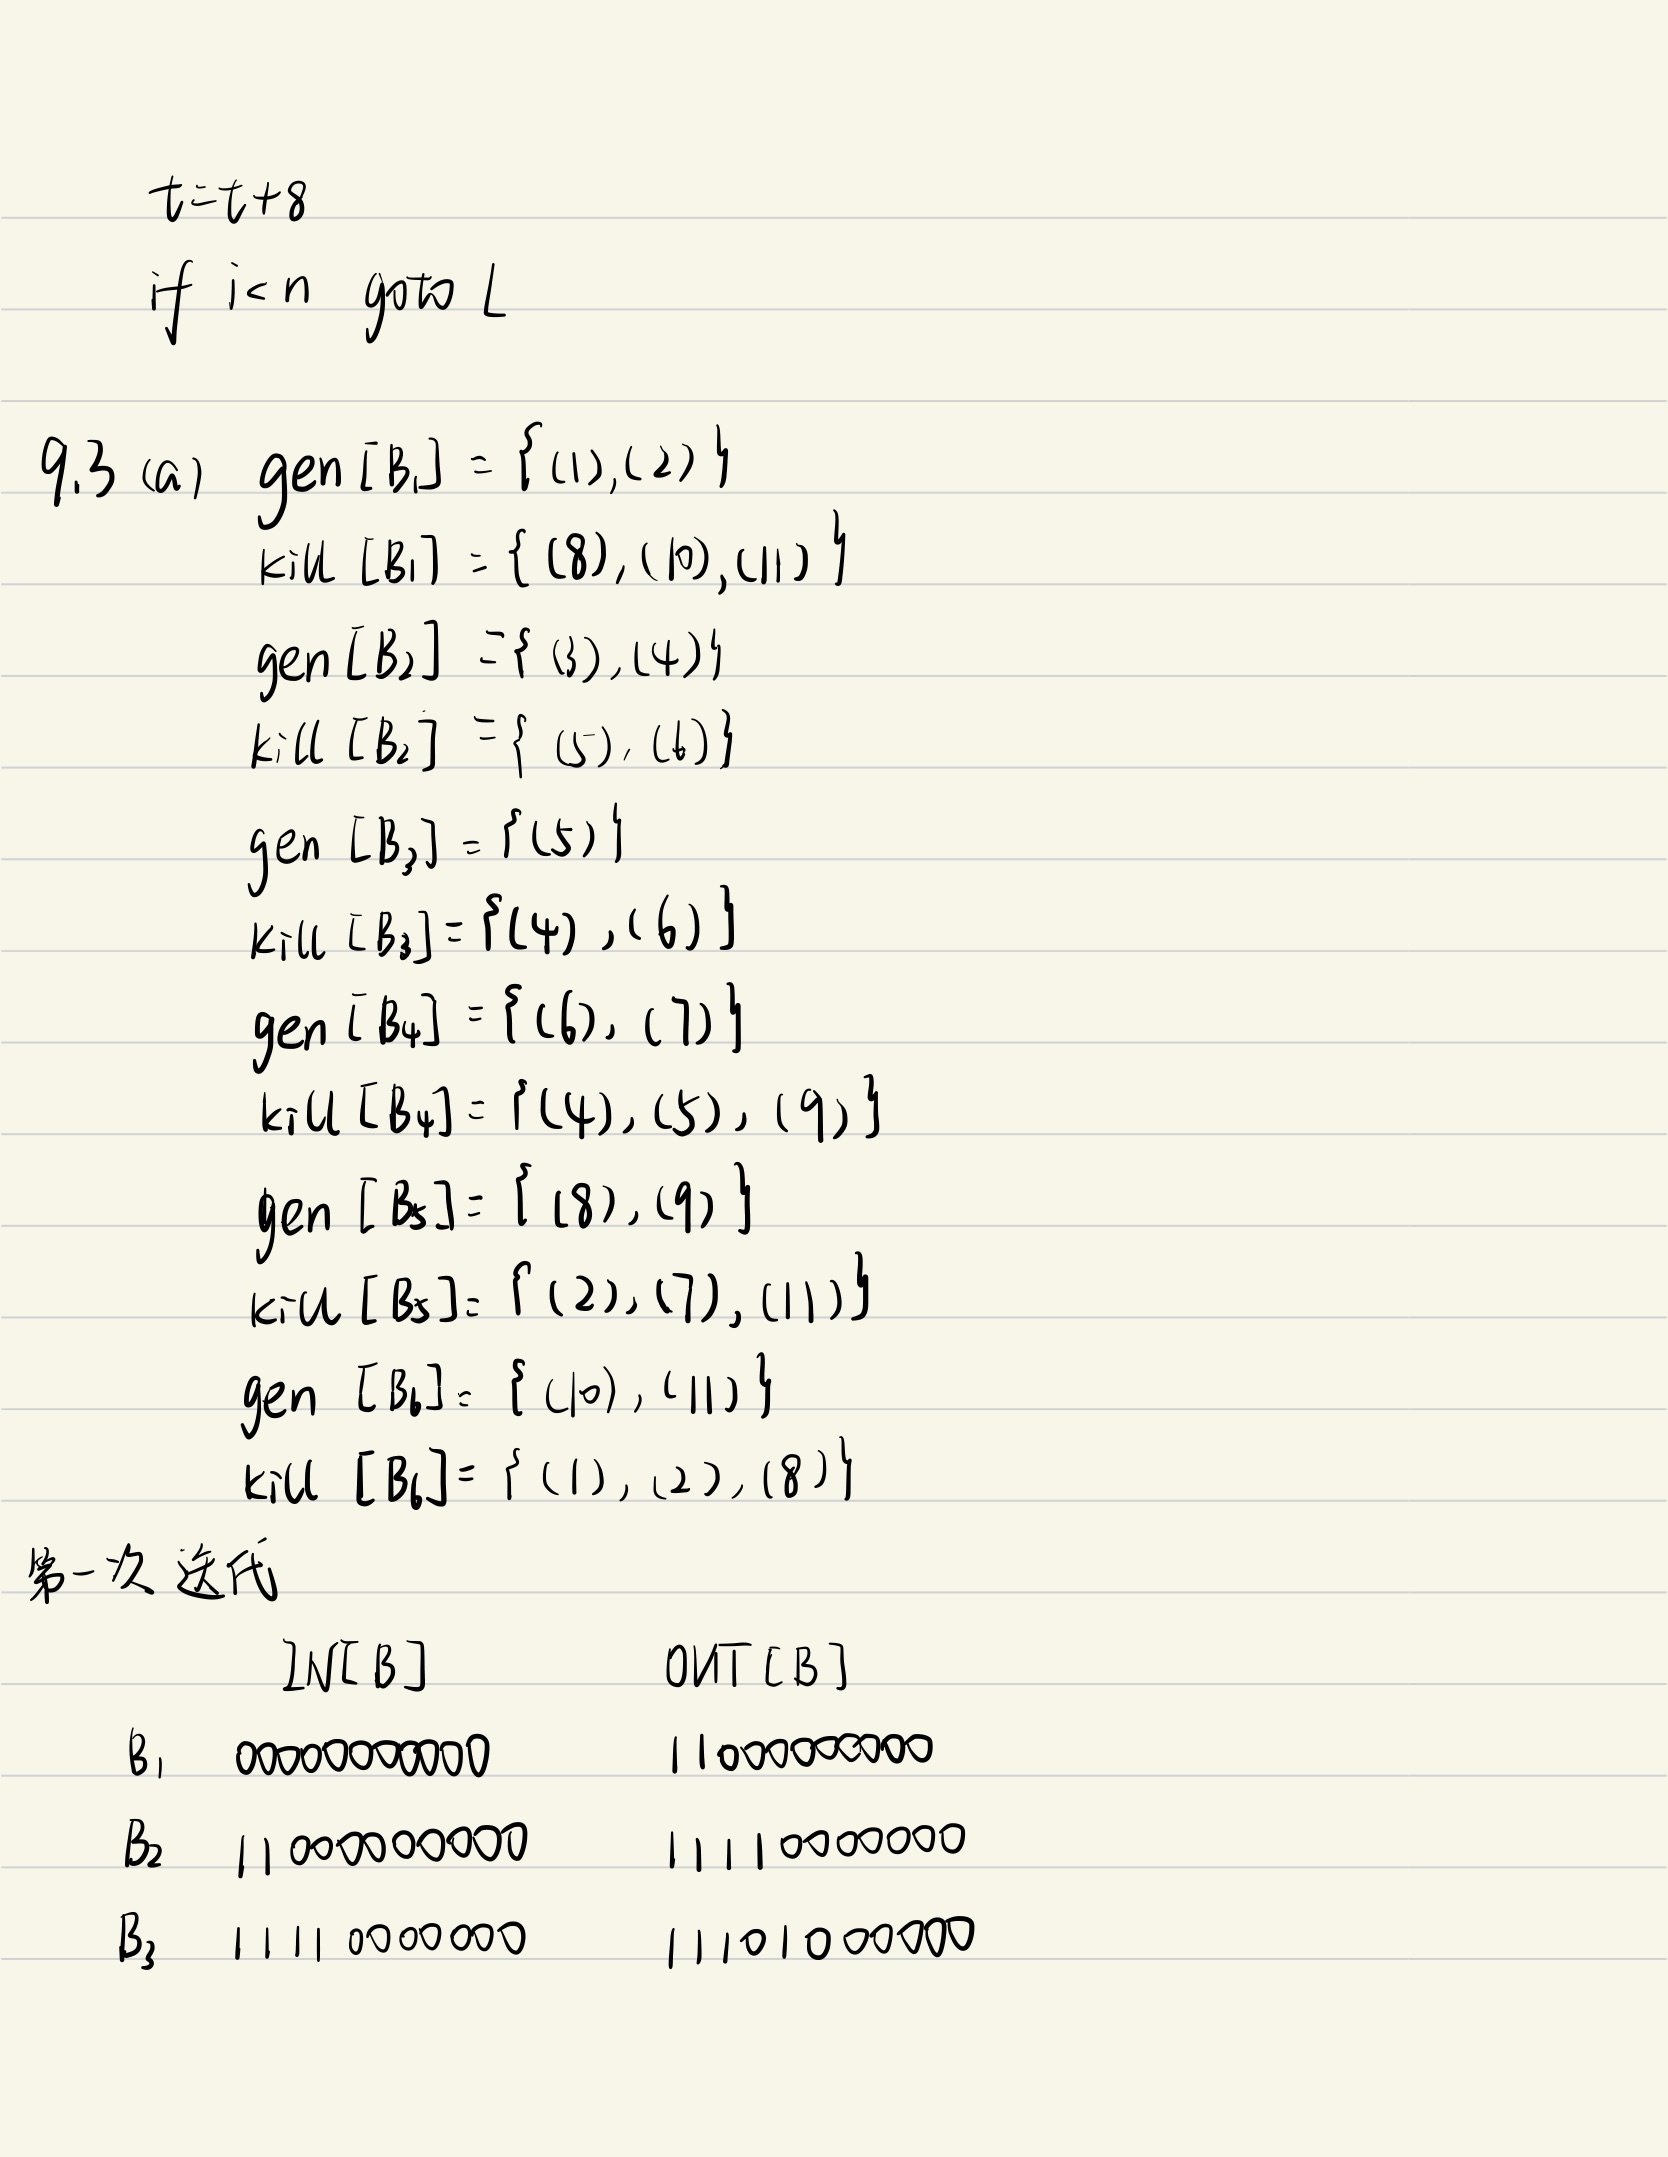 t=t+8
if i<n goto L
9.3 (a) gen [B₁] = {(1),(2)}
kill [B₁] = {(8),(10),(11)}
gen [B₂] = {(3),(4)}
kill [B₂] = {(5),(6)}
gen [B₃] = {(5)}
kill [B₃] = {(4),(6)}
gen [B₄] = {(6),(7)}
kill [B₄] = {(4),(5),(9)}
gen [B₅] = {(8),(9)}
kill [B₅] = {(2),(7),(11)}
gen [B₆] = {(10),(11)}
kill [B₆] = {(1),(2),(8)}
第一次迭代
IN[B] OUT[B]
B₁ 00000000000 11000000000
B₂ 11000000000 11110000000
B₃ 11110000000 11101000000